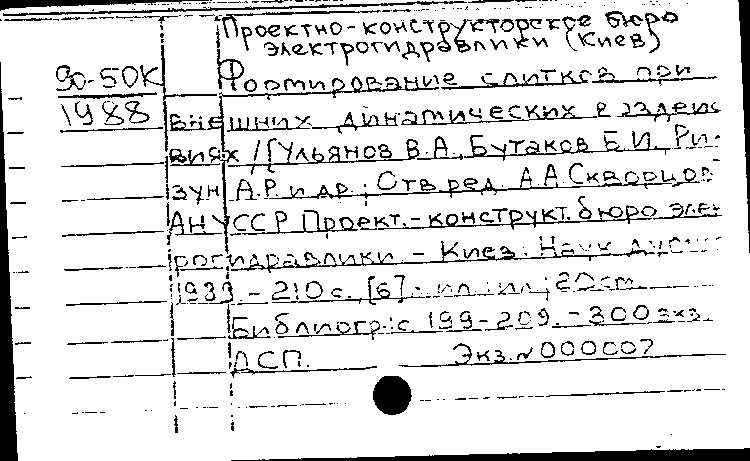 Проектно-конструкторское бюро
электрогидравлики (Киев)
90-50К
1988
Формирование слитков при
внешних динамических воздейс
виях / [Ульянов В.А., Бутаков Б.И., Ри-
зун А.Р. и др.; Отв. ред. А.А. Скворцов
АН УССР Проект.-конструкт. бюро элек
рогидравлики. - Киев: Наук. думка
1989. - 210 с., [6] : ил.; 20 см.
Библиогр.: с. 199-209. - 300 экз.
ДСП. Экз. № 000007